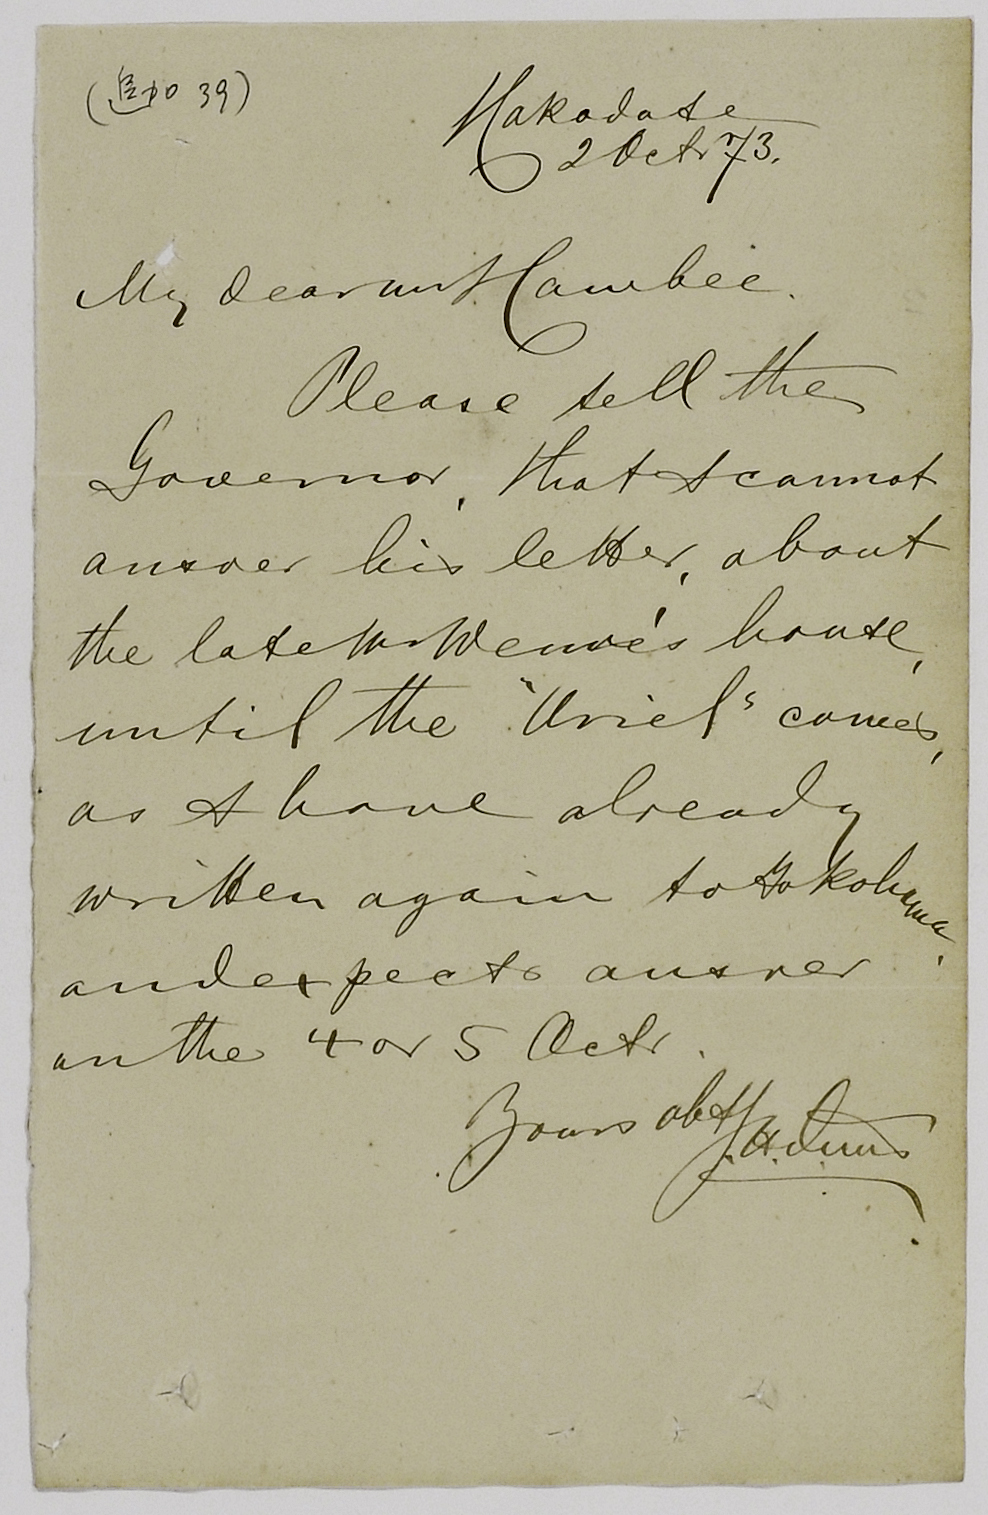 (追加 39)
Hakodate
2 Octr 73.
My dear mr Hambee.
Please tell the
Governor, that I cannot
answer his letter, about
the late Mr house,
until the "Uriel" comes,
as I have already
written again to Yokohama,
and expects answer
on the 4 or 5 Octr.
Yours obt
J. H.